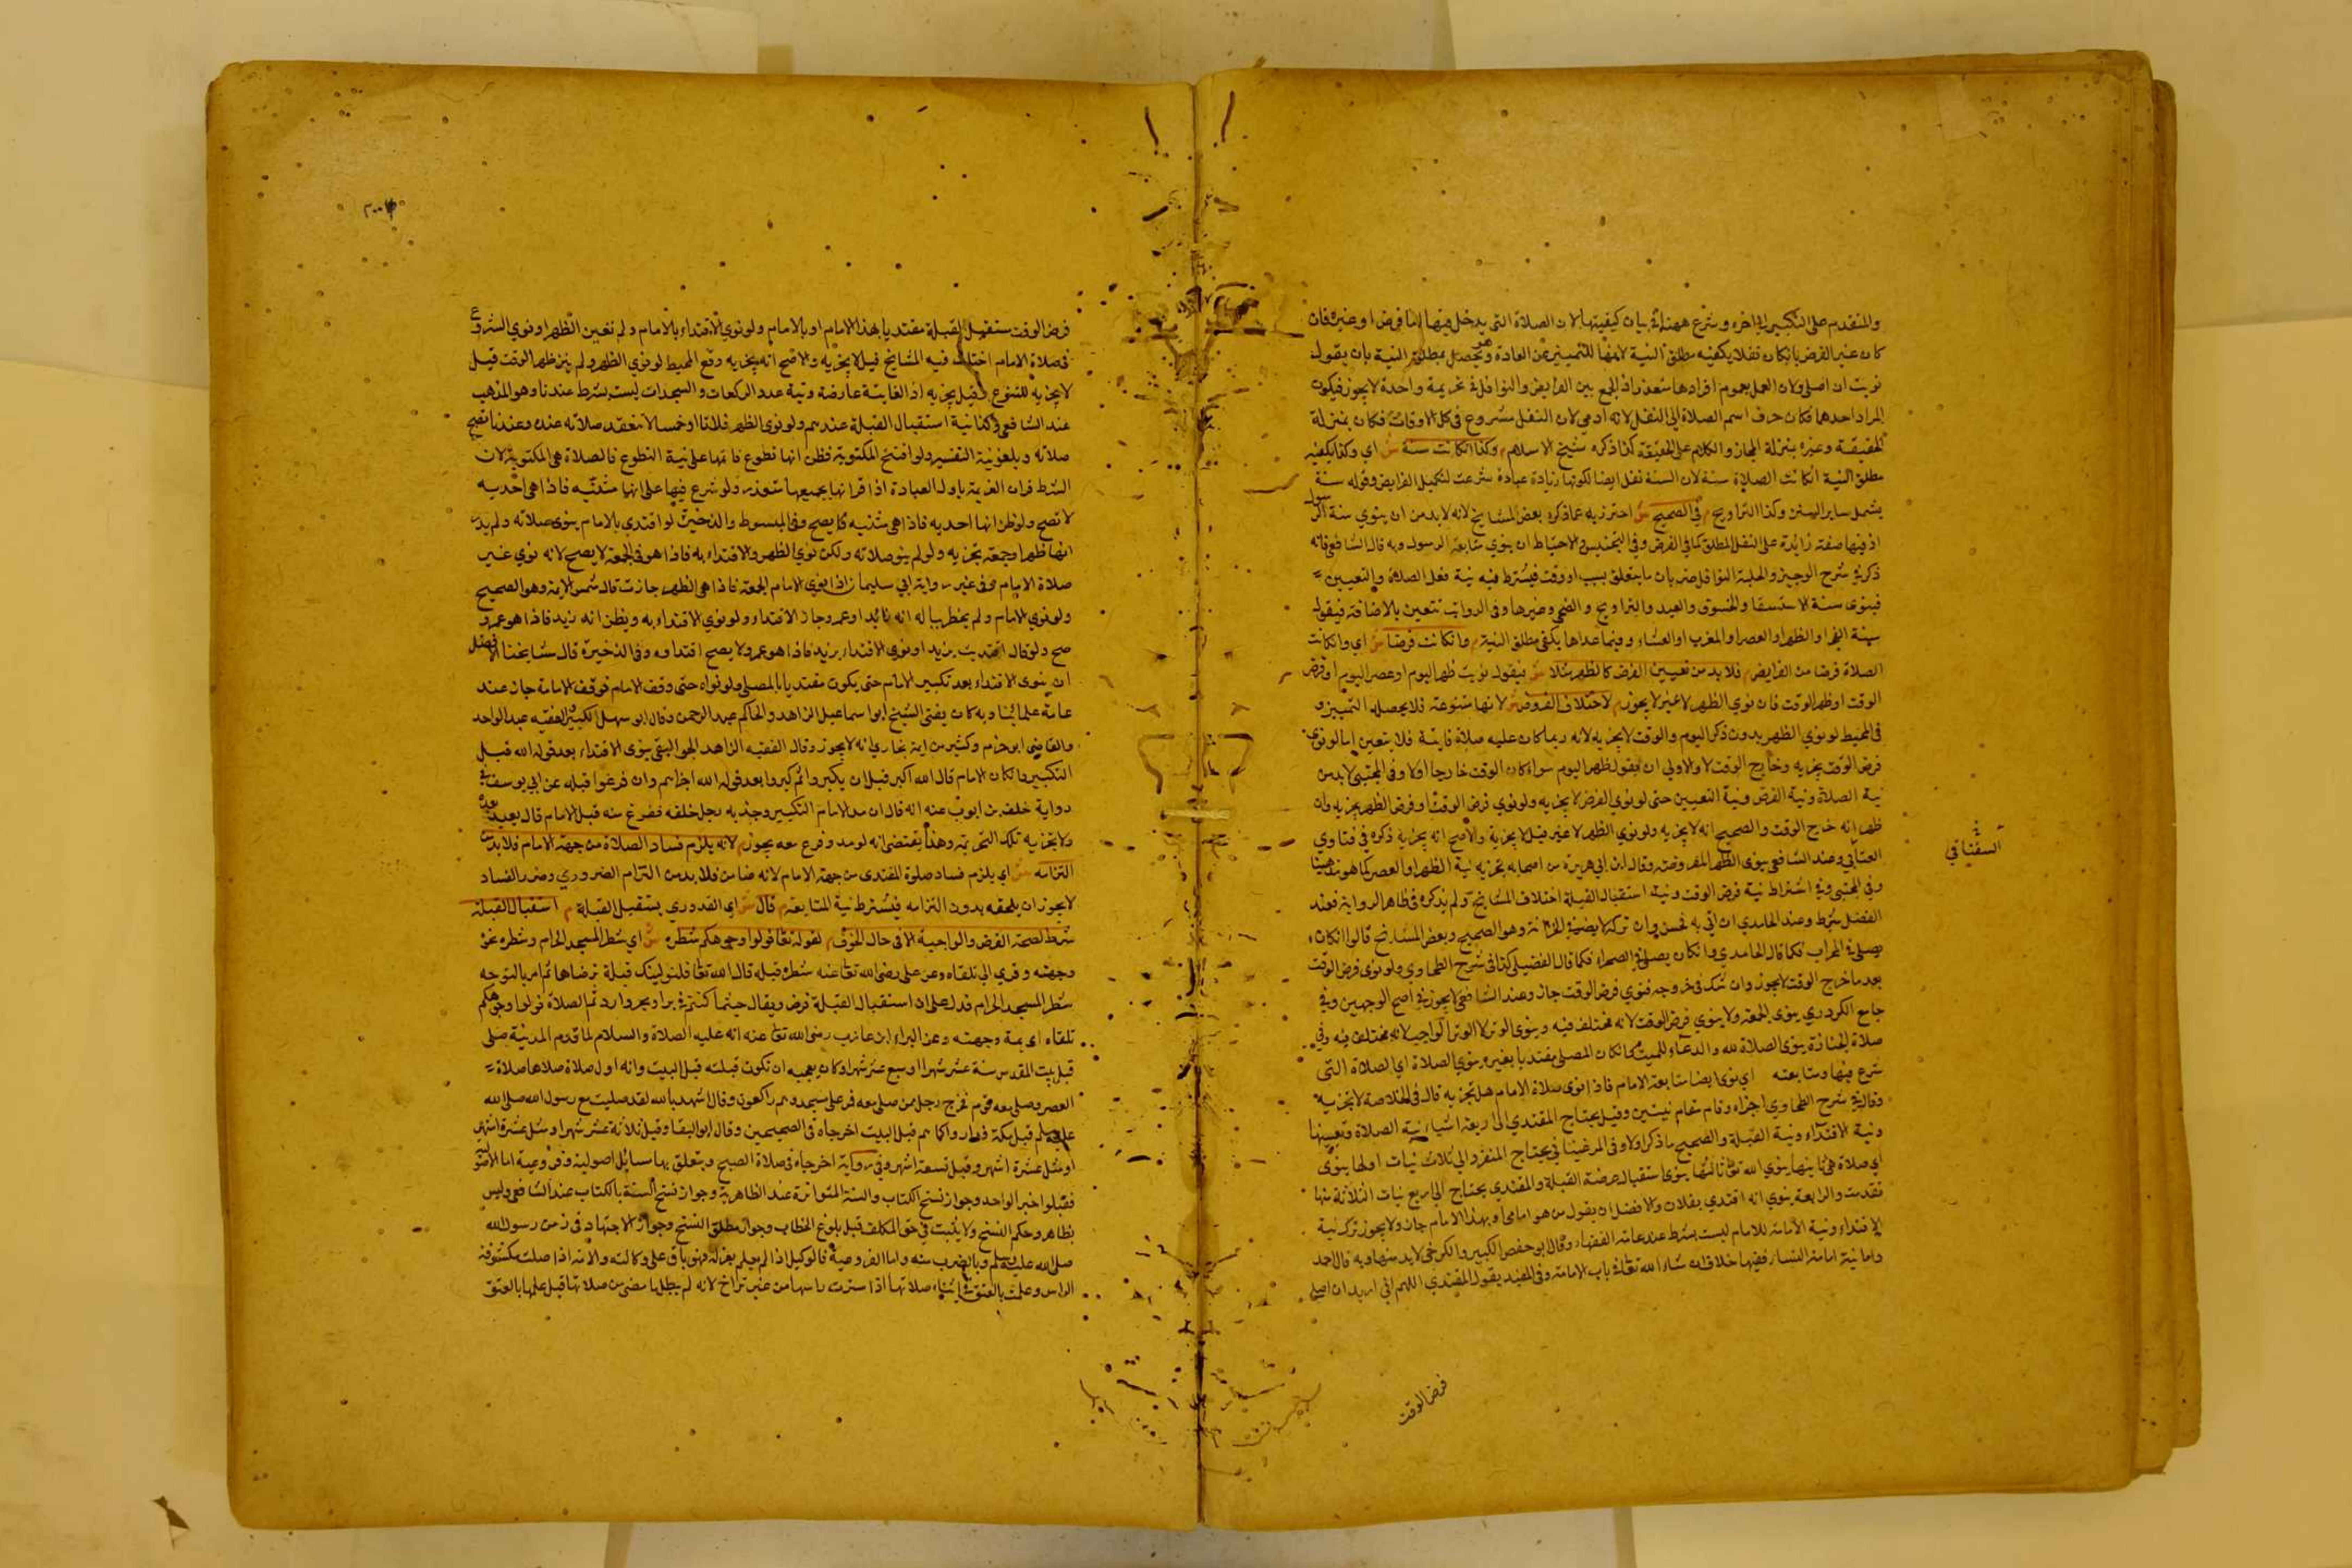 والمتقدم على التكبير الى اخره وشرع ههنا في بيان كيفيتها لان الصلاة التي يدخل فيها اما فرض او غيره فان
كان غير الفرض بان كان نفلا يكفيه مطلق النية لانها للتمييز عن العادة ويحصل بمطلق النية بان يقول
نويت ان اصلي ولان العمل بعموم افرادها متعذر اذ الجمع بين الفرايض والنوافل في تحريمة واحدة لا يجوز فيكون
المراد احدهما فكان صرف اسم الصلاة الى النفل لانه ادنى لان النفل مشروع في كل الاوقات فكان بمنزلة
الحقيقة وغيره بمنزلة المجاز والكلام على الحقيقة كذا ذكره شيخ الاسلام م وكذا ان كانت سنة ش اي وكذا يكفيه
مطلق النية ان كانت الصلاة سنة لان السنة نفل ايضا لكونها زيادة عبادة شرعت لتكميل الفرايض وقوله سنة
يشمل ساير السنن وكذا التراويح م في الصحيح ش احترز به عما ذكره بعض المشايخ لانه لابد من ان ينوي سنة الرسول
اذ فيها صفة زائدة على النفل المطلق كما في الفرض وفي التجنيس والاحتياط ان ينوي متابعة الرسول وبه قال الشافعي فانه
ذكر في شرح الوجيز والحلية النوافل ضربان ما يتعلق بسبب او وقت فيشترط فيه نية فعل الصلاة والتعيين
فينوى سنة الاستسقا والخسوف والعيد والتراويح والضحى وغيرها وفي الرواتب تتعين بالاضافة فيقول
سنة الفجر او الظهر او العصر او المغرب او العشاء وفيما عداها يكفى مطلق النية م وان كانت فرضا ش اي وان كانت
الصلاة فرضا من الفرايض م فلا بد من تعيين الفرض كالظهر مثلا ش فيقول نويت ظهر اليوم او عصر اليوم او فرض
الوقت او ظهر الوقت فان نوي الظهر لا غير لا يجوز م لاختلاف الفروض ش لانها متنوعة فلا يحصله التمييز و
في المحيط لو نوي الظهر بدون ذكر اليوم والوقت لا يجزيه لانه ربما كان عليه صلاة فايتة فلا يتعين اما لو نوى
فرض الوقت يجزيه وخارج الوقت لا والاولى ان يقول ظهر اليوم سواء كان الوقت خارجا اولا وفي المجتبى لابد من
نية الصلاة ونية الفرض ونية التعيين حتى لو نوي الفرض لا يجزيه ولو نوي فرض الوقت او فرض الظهر يجزيه وان
ظهر انه خرج الوقت والصحيح انه لا يجزيه ولو نوي الظهر لا غير قيل لا يجزيه والاصح انه يجزيه ذكره في فتاوي
العتابي وعند الشافعي ينوى الظهر المفروضة وقال ابن ابي هريرة من اصحابه يجزيه نية الظهر او العصر كما هو مذهبنا
وفي المجتبى وفي اشتراط نية فرض الوقت ونية استقبال القبلة اختلاف المشايخ ولم يذكره في ظاهر الرواية فعند
الفضل شرط وعند الحامدي ان اتى به فحسن وان تركه لا يضره وهو الصحيح وبعض المشايخ قالوا ان كان
يصلي في المحراب فكما قال الحامدي وان كان يصلي في الصحراء فكما قال الفضيلي كذا في شرح الطحاوي ولو نوى فرض الوقت
بعد ما خرج الوقت لا يجوز وان شك في خروجه فنوي فرض الوقت جاز وعند الشافعي لا يجوز في اصح الوجهين وفي
جامع الكردري ينوى الجمعة ولا ينوي فرض الوقت لانه مختلف فيه وينوى الوتر لا الوتر الواجب لانه مختلف فيه وفي
صلاة الجنازة ينوى الصلاة لله والدعاء للميت م كما ان كان المصلى مقتديا بغيره ينوي الصلاة اي الصلاة التي
شرع فيها ومتابعته اي نوى ايضا متابعة الامام فاذا نوى صلاة الامام هل تجزيه قال في الخلاصة لا تجزيه
وقال في شرح الطحاوي اجزاه وقام مقام نيتين وقيل يحتاج المقتدي الى اربعة اشياء نية الصلاة وتعيينها
ونية الاقتداء ونية القبلة والصحيح ما ذكر اولا وفي المرغيناني يحتاج المنفرد الى ثلاث نيات اولها ينوى
اي صلاة هي ثانيها ينوي الله تعالى ثالثها ينوى استقبال عرصة القبلة والمقتدي يحتاج الى اربع نيات الثلاثة منها
تقدمت والرابعة ينوي انه اقتدي بفلان والافضل ان يقول من هو امامي او بهذا الامام جاز ولا يجوز ترك نية
الاقتداء ونية الامامة للامام ليست بشرط عند عامة الفقهاء وقال ابو حفص الكبير والكرخي لابد منها وبه قال احمد
واما نية امامة النساء ففيها خلاف ان شاء الله تعالى في باب الامامة وفي المفيد يقول المقتدي اللهم اني اريد ان اصلي
السغناقي
فرض الوقت
فرض الوقت مستقبل القبلة مقتديا بهذا الامام او بالامام ولو نوي الاقتداء بالامام ولم تعين الظهر او نوي الشروع
في صلاة الامام اختلف فيه المشايخ قيل لا يجزيه والاصح انه يجزيه وقع المحيط لو نوي الظهر ولم ينو ظهر الوقت قيل
لا يجزيه للتنوع وقيل يجزيه اذ الفايتة عارضة ونية عدد الركعات والسجدات ليست بشرط عندنا وهو المذهب
عند الشافعي وكذا نية استقبال القبلة عندهم ولو نوى الظهر ثلاثا او خمسا لا تنعقد صلاته عنده وعندنا تصح
صلاته ويلغو نية التفسير ولو افتتح المكتوبة فظن انها تطوع فاتمها على نية التطوع فالصلاة هي المكتوبة لان
الشرط قران العزيمة باول العبادة اذ اقرانها بجميعها متعذر ولو شرع فيها على انها مثنيه فاذا هي احديه
لا تصح ولو ظن انها احديه فاذا هي مثنيه كل يصح وفي المبسوط والذخيرة لو اقتدي بالامام ينوى صلاته ولم يدر
انها ظهر او جمعة تجزيه ولو لم ينو صلاته ولكن نوي الظهر والاقتداء به فاذا هو في الجمعة لا يصح لانه نوي غير
صلاة الامام وفي غير رواية ابي سليمان اذا نوى الامام الجمعة فاذا هي الظهر جازت قال شمس الائمة وهو الصحيح
ولو نوي الامام ولم يخطر بباله انه زيد او عمرو جاز الاقتداء ولو نوي الاقتداء به ويظن انه زيد فاذا هو عمرو
صح ولو قال اقتديت بزيد او نوي الاقتداء بزيد فاذا هو عمرو لا يصح اقتداؤه وفي الذخيرة قال مشايخنا الافضل
ان ينوى الاقتداء بعد تكبير الامام حتى يكون مقتديا بالمصلي ولو نواه حتى وقف الامام موقف الامامة جاز عند
عامة علمائنا وبه كان يفتى الشيخ ابو اسماعيل الزاهد والحاكم عبد الرحمن وقال ابو سهل الكبير والفقيه عبد الواحد
والقاضي ابو حازم وكثير من ائمة بخاري انه لا يجوز وقال الفقيه الزاهد ينوى الاقتداء بعد قوله الله قبل
التكبير وان كان الامام قال الله اكبر قبل ان يكبر واثم كبروا بعد قوله الله اجزاهم وان فرغوا قبله عن ابي يوسف في
رواية خلف بن ايوب عنه انه قال ان مد الامام التكبير وجذبه رجل خلفه ففرغ منه قبل الامام قال يعيد بعده
ولا يجزيه تلك التحريمة وهذا يقتضي انه لو مد وفرغ معه يجوز م لانه يلزم فساد الصلاة من جهة الامام فلا بد من
التزامه ش اي يلزم فساد صلوة المقتدى من جهة الامام لانه ضامن فلا بد من التزام الضروري وضرر الفساد
لا يجوز ان يلحقه بدون التزامه فيشترط نية المتابعة م قال ش اي القدوري يستقبل القبلة م استقبال القبلة
شرط لصحة الفرض والواجبة الا في حال الخوف م لقوله تعالى فولوا وجوهكم شطره ش اي شطر المسجد الحرام وشطره نحوه
وجهته وقري الى تلقاه وعن على رضي الله تعالى عنه شطره قبله قال الله تعالى فلنولينك قبلة ترضاها ثم امر بالتوجه
شطر المسجد الحرام فدل على ان استقبال القبلة فرض ويقال حيثما كنتم في بر او بحر واردتم الصلاة فولوا وجوهكم
تلقاه اي يمة وجهته وعن البراء ابن عازب رضي الله تعالى عنه انه عليه الصلاة والسلام لما قدم المدينة صلى
قبل بيت المقدس ستة عشر شهرا او سبع عشر شهرا وكان يعجبه ان تكون قبلته قبل البيت وانه اول صلاة صلاها صلاة
العصر وصلى معه قوم فخرج رجل ممن صلى معه فمر على مسجد وهم راكعون وقال اشهد بالله لقد صليت مع رسول الله صلى الله
عليه وسلم قبل مكة فداروا كما هم قبل البيت اخرجاه في الصحيحين وقال ابو البقا وقيل ثلاثة عشر شهرا ومثل عشرة اشهر
او مثل عشرة اشهر وقيل تسعة اشهر وفي رواية اخرجاه في صلاة الصبح ويتعلق بها مسائل اصولية وفروعية اما الاصولية
فقبلوا خبر الواحد وجواز نسخ الكتاب والسنة المتواترة عند الظاهرية وجواز نسخ السنة بالكتاب عند الشافعي وليس
بظاهر وحكم النسخ ولا يثبت في حق المكلف قبل بلوغ الخطاب وجواز مطلق النسخ وجواز الاجتهاد في زمن رسول الله
صلى الله عليه وسلم وبالضرب منه واما الفروعية فالوكيل اذا لم يعلم بعزله فهو باق على وكالته والامة اذا صلت مكشوفة
الراس وعلمت بالعتق في اثناء صلاتها اذا سترت راسها من غير تراخ لانه لم يبطل ما مضى من صلاتها قبل علمها بالعتق